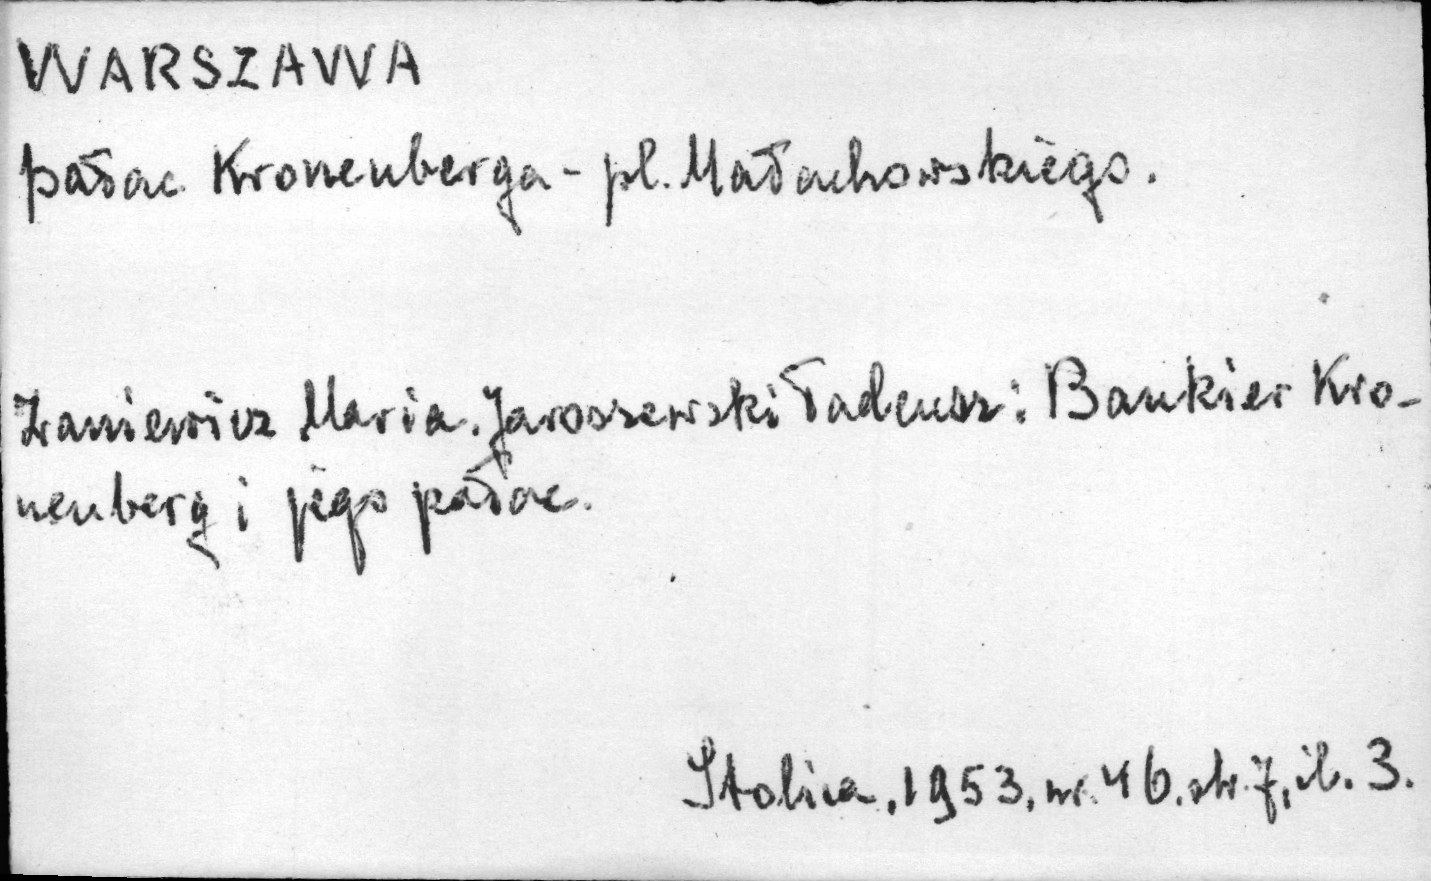 WARSZAWA
pałac Kronenberga - pl. Małachowskiego.
Maria. Jaroszewski Tadeusz: Bankier Kro-
nenberg i jego pałac.
Stolica, 1953, nr. 46. str. 7, il. 3.